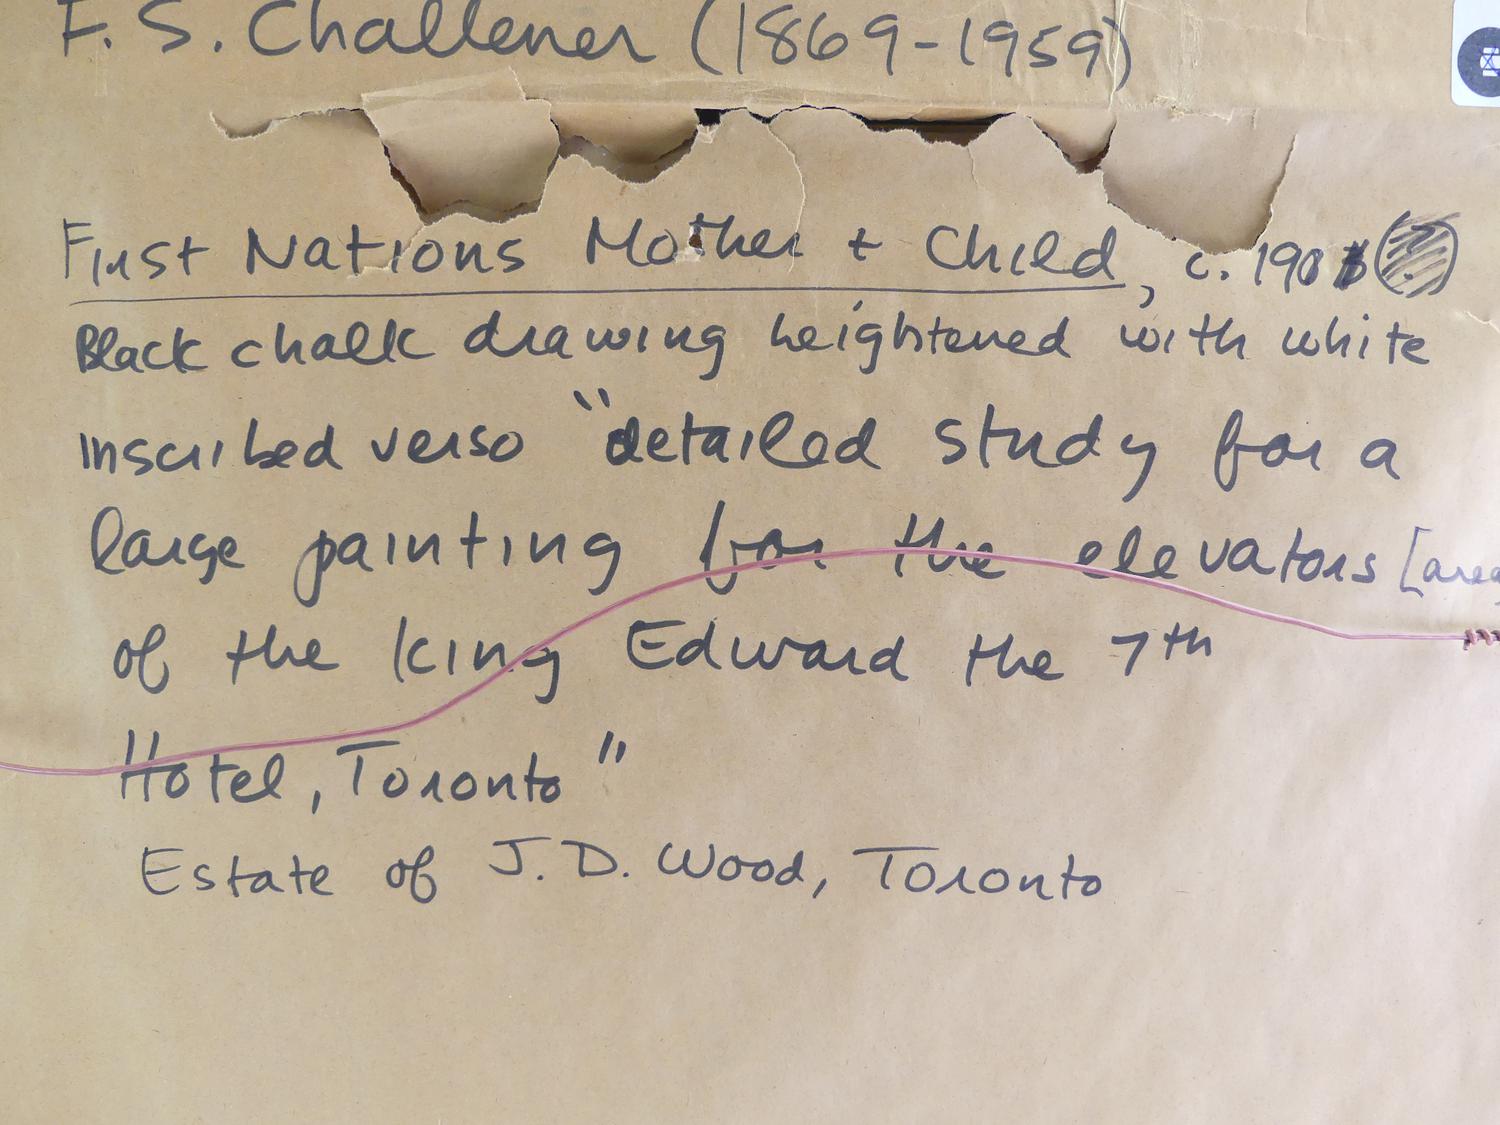 F. S. Challener (1869-1959)
First Nations Mother + Child, c.
Black chalk drawing heightened with white
inscribed verso "detailed study for a
large painting for the elevators [area
of the King Edward the 7th
Hotel, Toronto"
Estate of J. D. Wood, Toronto